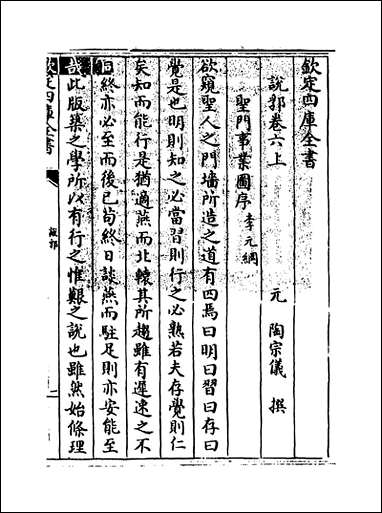 欽定四庫全書
說郛卷六上
元 陶宗儀 撰
聖門事業圖序 李元綱
欲窺聖人之門墻所造之道有四焉曰明曰習曰存曰
覺是也明則知之必當習則行之必熟若夫存覺則仁
矣知而能行是猶適燕而北轅其所趨雖有遲速之不
同終亦必至而後已茍終日談燕而駐足則亦安能至
哉此版築之學所以有行之惟艱之說也雖然始條理
欽定四庫全書
說郛